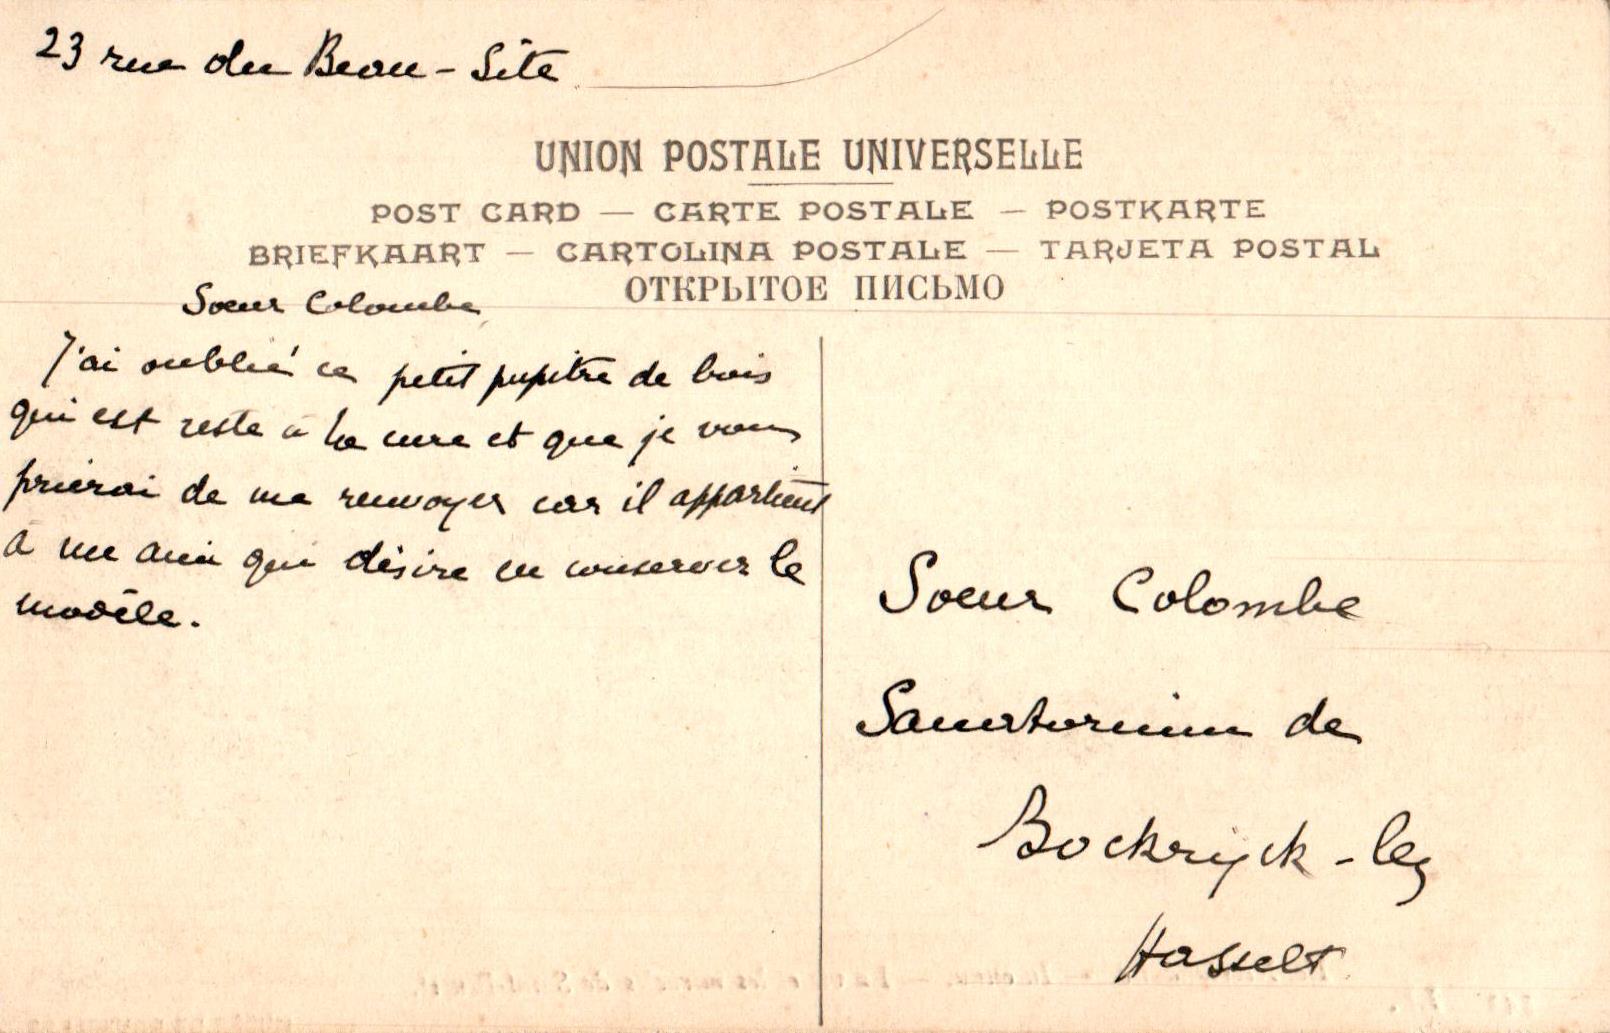 23 rue du Beau-Site
UNION POSTALE UNIVERSELLE
POST CARD — CARTE POSTALE — POSTKARTE
BRIEFKAART — CARTOLINA POSTALE — TARJETA POSTAL
ОТКРЫТОЕ ПИСЬМО
Soeur Colombe
J'ai oublié ce petit pupitre de bois
qui est resté à la cure et que je vous
prierai de me renvoyer car il appartient
à un ami qui désire en conserver le
modèle.
Soeur Colombe
Sanatorium de
Bockrijck-lez
Hasselt